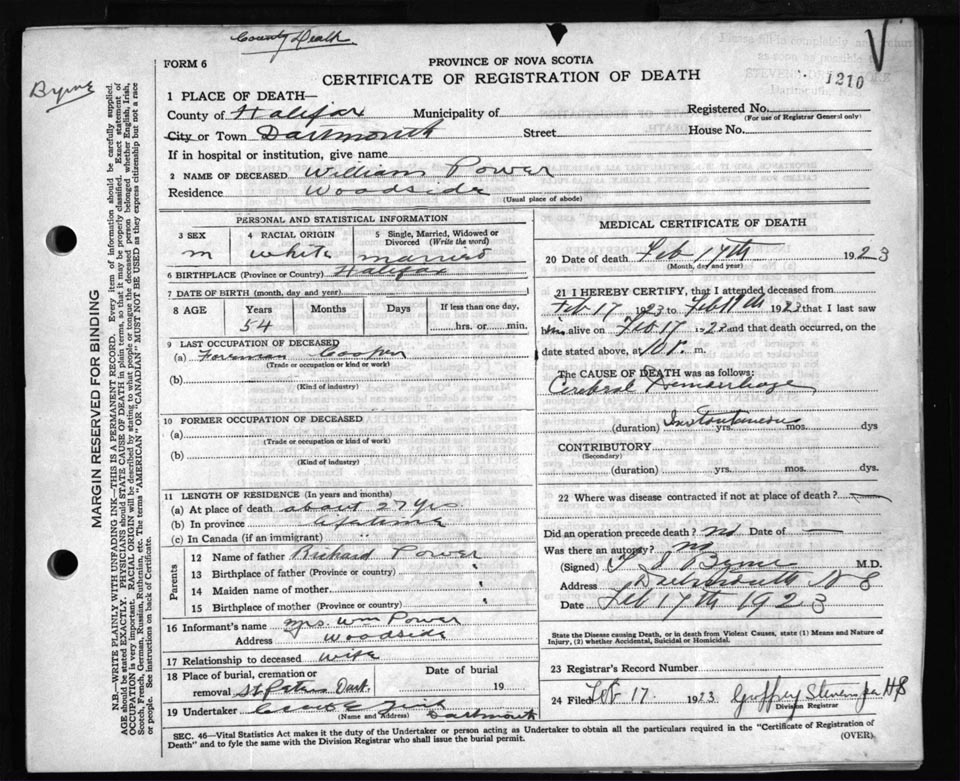 County Death
Byrne
FORM 6
PROVINCE OF NOVA SCOTIA
CERTIFICATE OF REGISTRATION OF DEATH
1210
MARGIN RESERVED FOR BINDING
N.B.—WRITE PLAINLY WITH UNFADING INK—THIS IS A PERMANENT RECORD. Every item of information should be carefully supplied.
AGE should be stated EXACTLY. PHYSICIANS should STATE CAUSE OF DEATH in plain terms, so that it may be properly classified. Exact statement of
OCCUPATION is very important. RACIAL ORIGIN will be described by stating to what people or tongue the deceased person belonged whether English, Irish,
Scotch, French, German, Russian, Ruthenian, etc. The terms "AMERICAN" OR "CANADIAN" MUST NOT BE USED as they express citizenship but not a race
or people. See instructions on back of Certificate.
1 PLACE OF DEATH—
County of Halifax Municipality of Registered No.
(For use of Registrar General only)
City or Town Dartmouth Street House No.
If in hospital or institution, give name
2 NAME OF DECEASED William Power
Residence Woodside
(Usual place of abode)
PERSONAL AND STATISTICAL INFORMATION
3 SEX 4 RACIAL ORIGIN 5 Single, Married, Widowed or Divorced (Write the word)
m white married
6 BIRTHPLACE (Province or Country) Halifax
7 DATE OF BIRTH (month, day and year)
8 AGE Years Months Days If less than one day,
54 hrs. or min.
9 LAST OCCUPATION OF DECEASED
(a) Foreman Cooper
(Trade or occupation or kind of work)
(b)
(Kind of industry)
10 FORMER OCCUPATION OF DECEASED
(a)
(Trade or occupation or kind of work)
(b)
(Kind of industry)
11 LENGTH OF RESIDENCE (In years and months)
(a) At place of death about 27 yrs.
(b) In province lifetime
(c) In Canada (if an immigrant)
Parents
12 Name of father Richard Power
13 Birthplace of father (Province or country)
14 Maiden name of mother
15 Birthplace of mother (Province or country)
16 Informant's name Mrs. Wm Power
Address Woodside
17 Relationship to deceased wife
18 Place of burial, cremation or Date of burial
removal St Peters Dart. 19
19 Undertaker Dartmouth
(Name and Address)
MEDICAL CERTIFICATE OF DEATH
20 Date of death Feb 17th 1923
(Month, day and year)
21 I HEREBY CERTIFY, that I attended deceased from
Feb 17 1923 to Feb 17th 1923 that I last saw
him alive on Feb 17 1923 and that death occurred, on the
date stated above, at 10 P. m.
The CAUSE OF DEATH was as follows:
Cerebral Hemorrhage
Instantaneous
(duration) yrs. mos. dys
CONTRIBUTORY
(Secondary)
(duration) yrs. mos. dys.
22 Where was disease contracted if not at place of death?
Did an operation precede death? No Date of
Was there an autopsy? No
(Signed) Byrne M.D.
Address Dartmouth N S
Date Feb 17th 1923
State the Disease causing Death, or in death from Violent Causes, state (1) Means and Nature of
Injury, (2) whether Accidental, Suicidal or Homicidal.
23 Registrar's Record Number
24 Filed Feb 17 1923 Geoffrey Stevens
Division Registrar
SEC. 46—Vital Statistics Act makes it the duty of the Undertaker or person acting as Undertaker to obtain all the particulars required in the "Certificate of Registration of
Death" and to fyle the same with the Division Registrar who shall issue the burial permit.
(OVER)